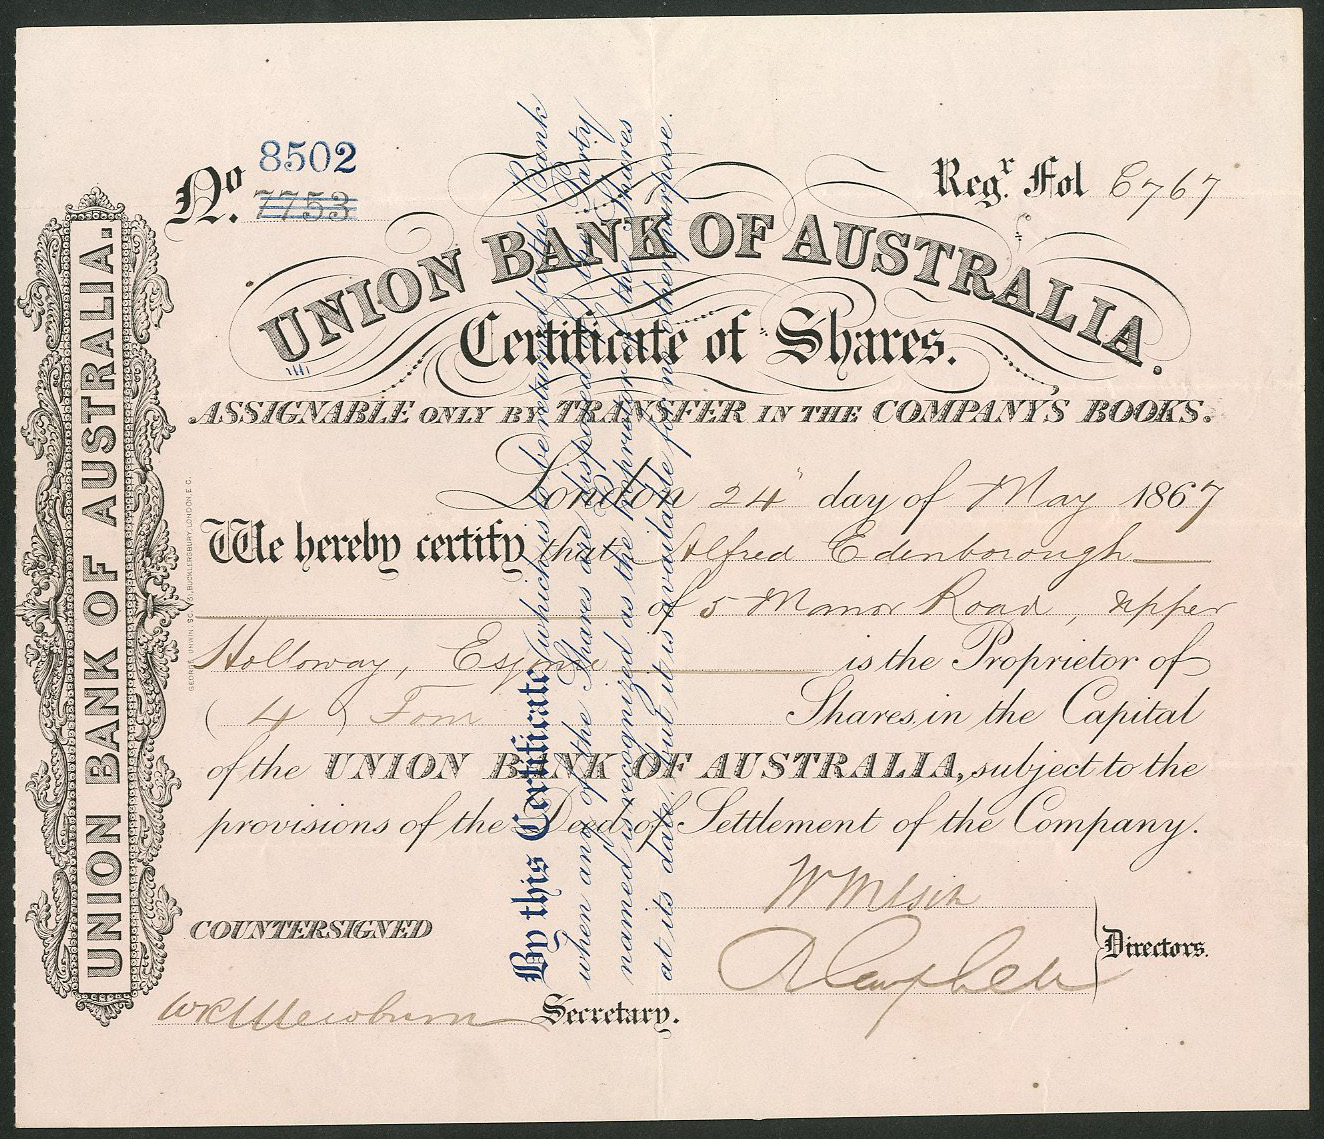 No. 8502
7753
Regr. Fol 6767
UNION BANK OF AUSTRALIA.
Certificate of Shares.
ASSIGNABLE ONLY BY TRANSFER IN THE COMPANY'S BOOKS.
London 24" day of May 1867
We hereby certify that Alfred Edenborough
of 5 Manor Road, Upper
Holloway, Esquire is the Proprietor of
( 4 ) Four Shares, in the Capital
of the UNION BANK OF AUSTRALIA, subject to the
provisions of the Deed of Settlement of the Company.
COUNTERSIGNED
Directors.
Secretary.
UNION BANK OF AUSTRALIA.
GEORGE UNWIN, 31, BUCKLERSBURY, LONDON, E.C.
By this Certificate (which is to be returned to the Bank
when any of the Shares are disposed of) the Party
named is recognized as the Proprietor of the Shares
at its date, but it is available for no other purpose.